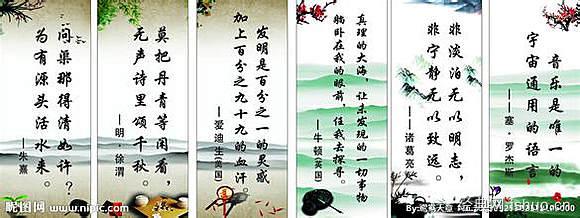 问渠那得清如许？
为有源头活水来。
——朱熹
莫把丹青等闲看，
无声诗里颂千秋。
——明·徐渭
发明是百分之一的灵感
加上百分之九十九的血汗。
——爱迪生(美国)
真理的大海，让未发现的一切事物
躺卧在我的眼前，任我去探寻。
——牛顿(英国)
非淡泊无以明志，
非宁静无以致远。
——诸葛亮
音乐是唯一的
宇宙通用的语言
——塞·罗杰斯
昵图网 www.nipic.com